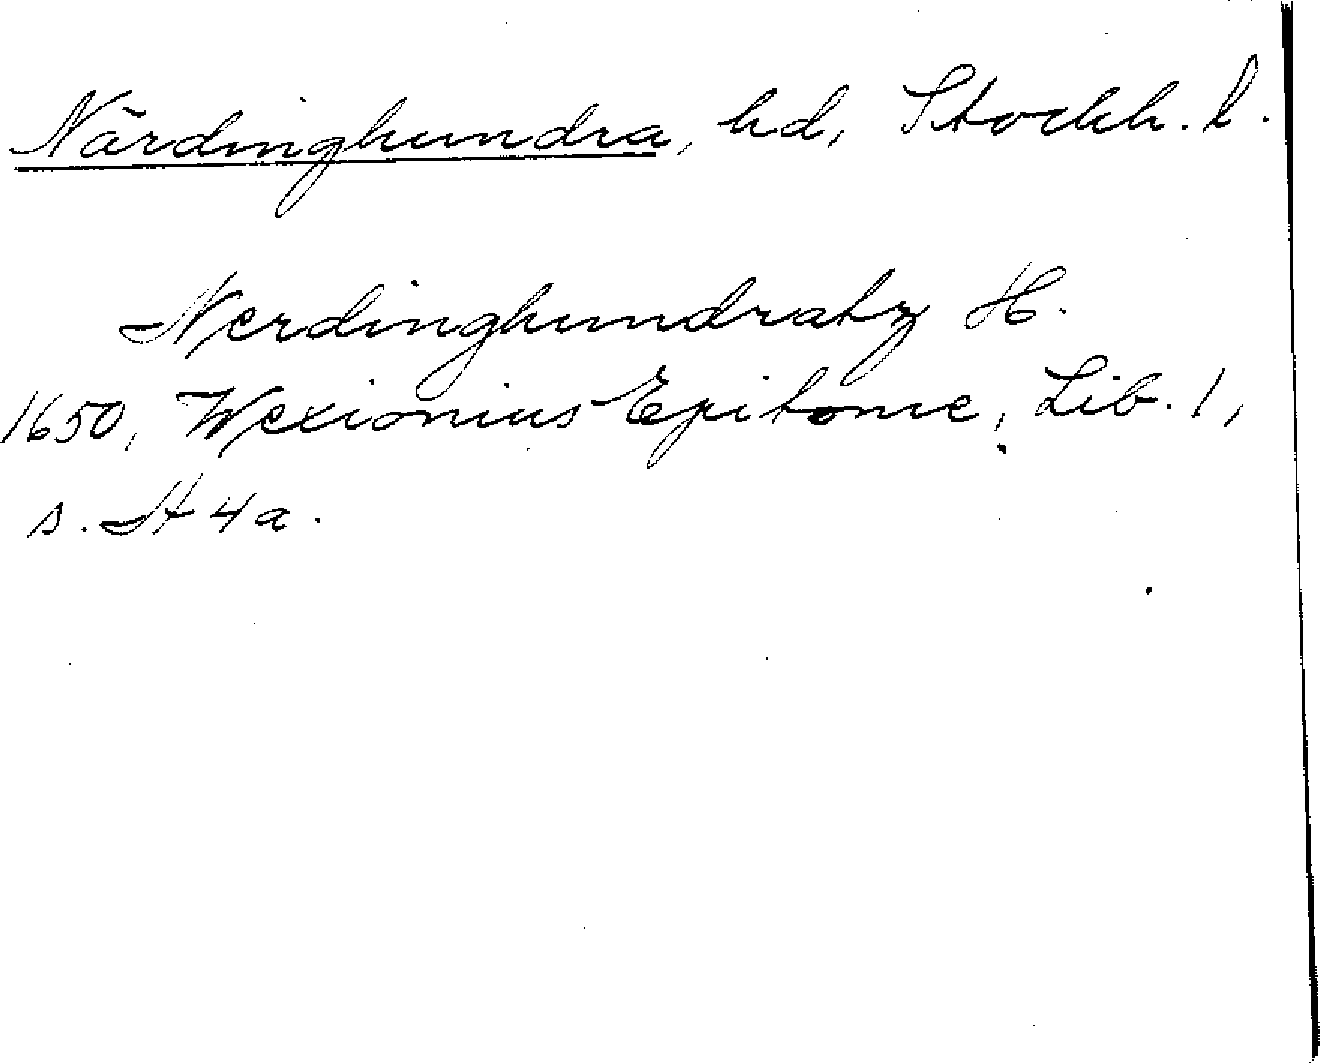 Närdinghundra, hd, Stockh. l.
Nerdinghundratz H.
1650, Wexionius Epitome, Lib. 1,
s. H 4a.